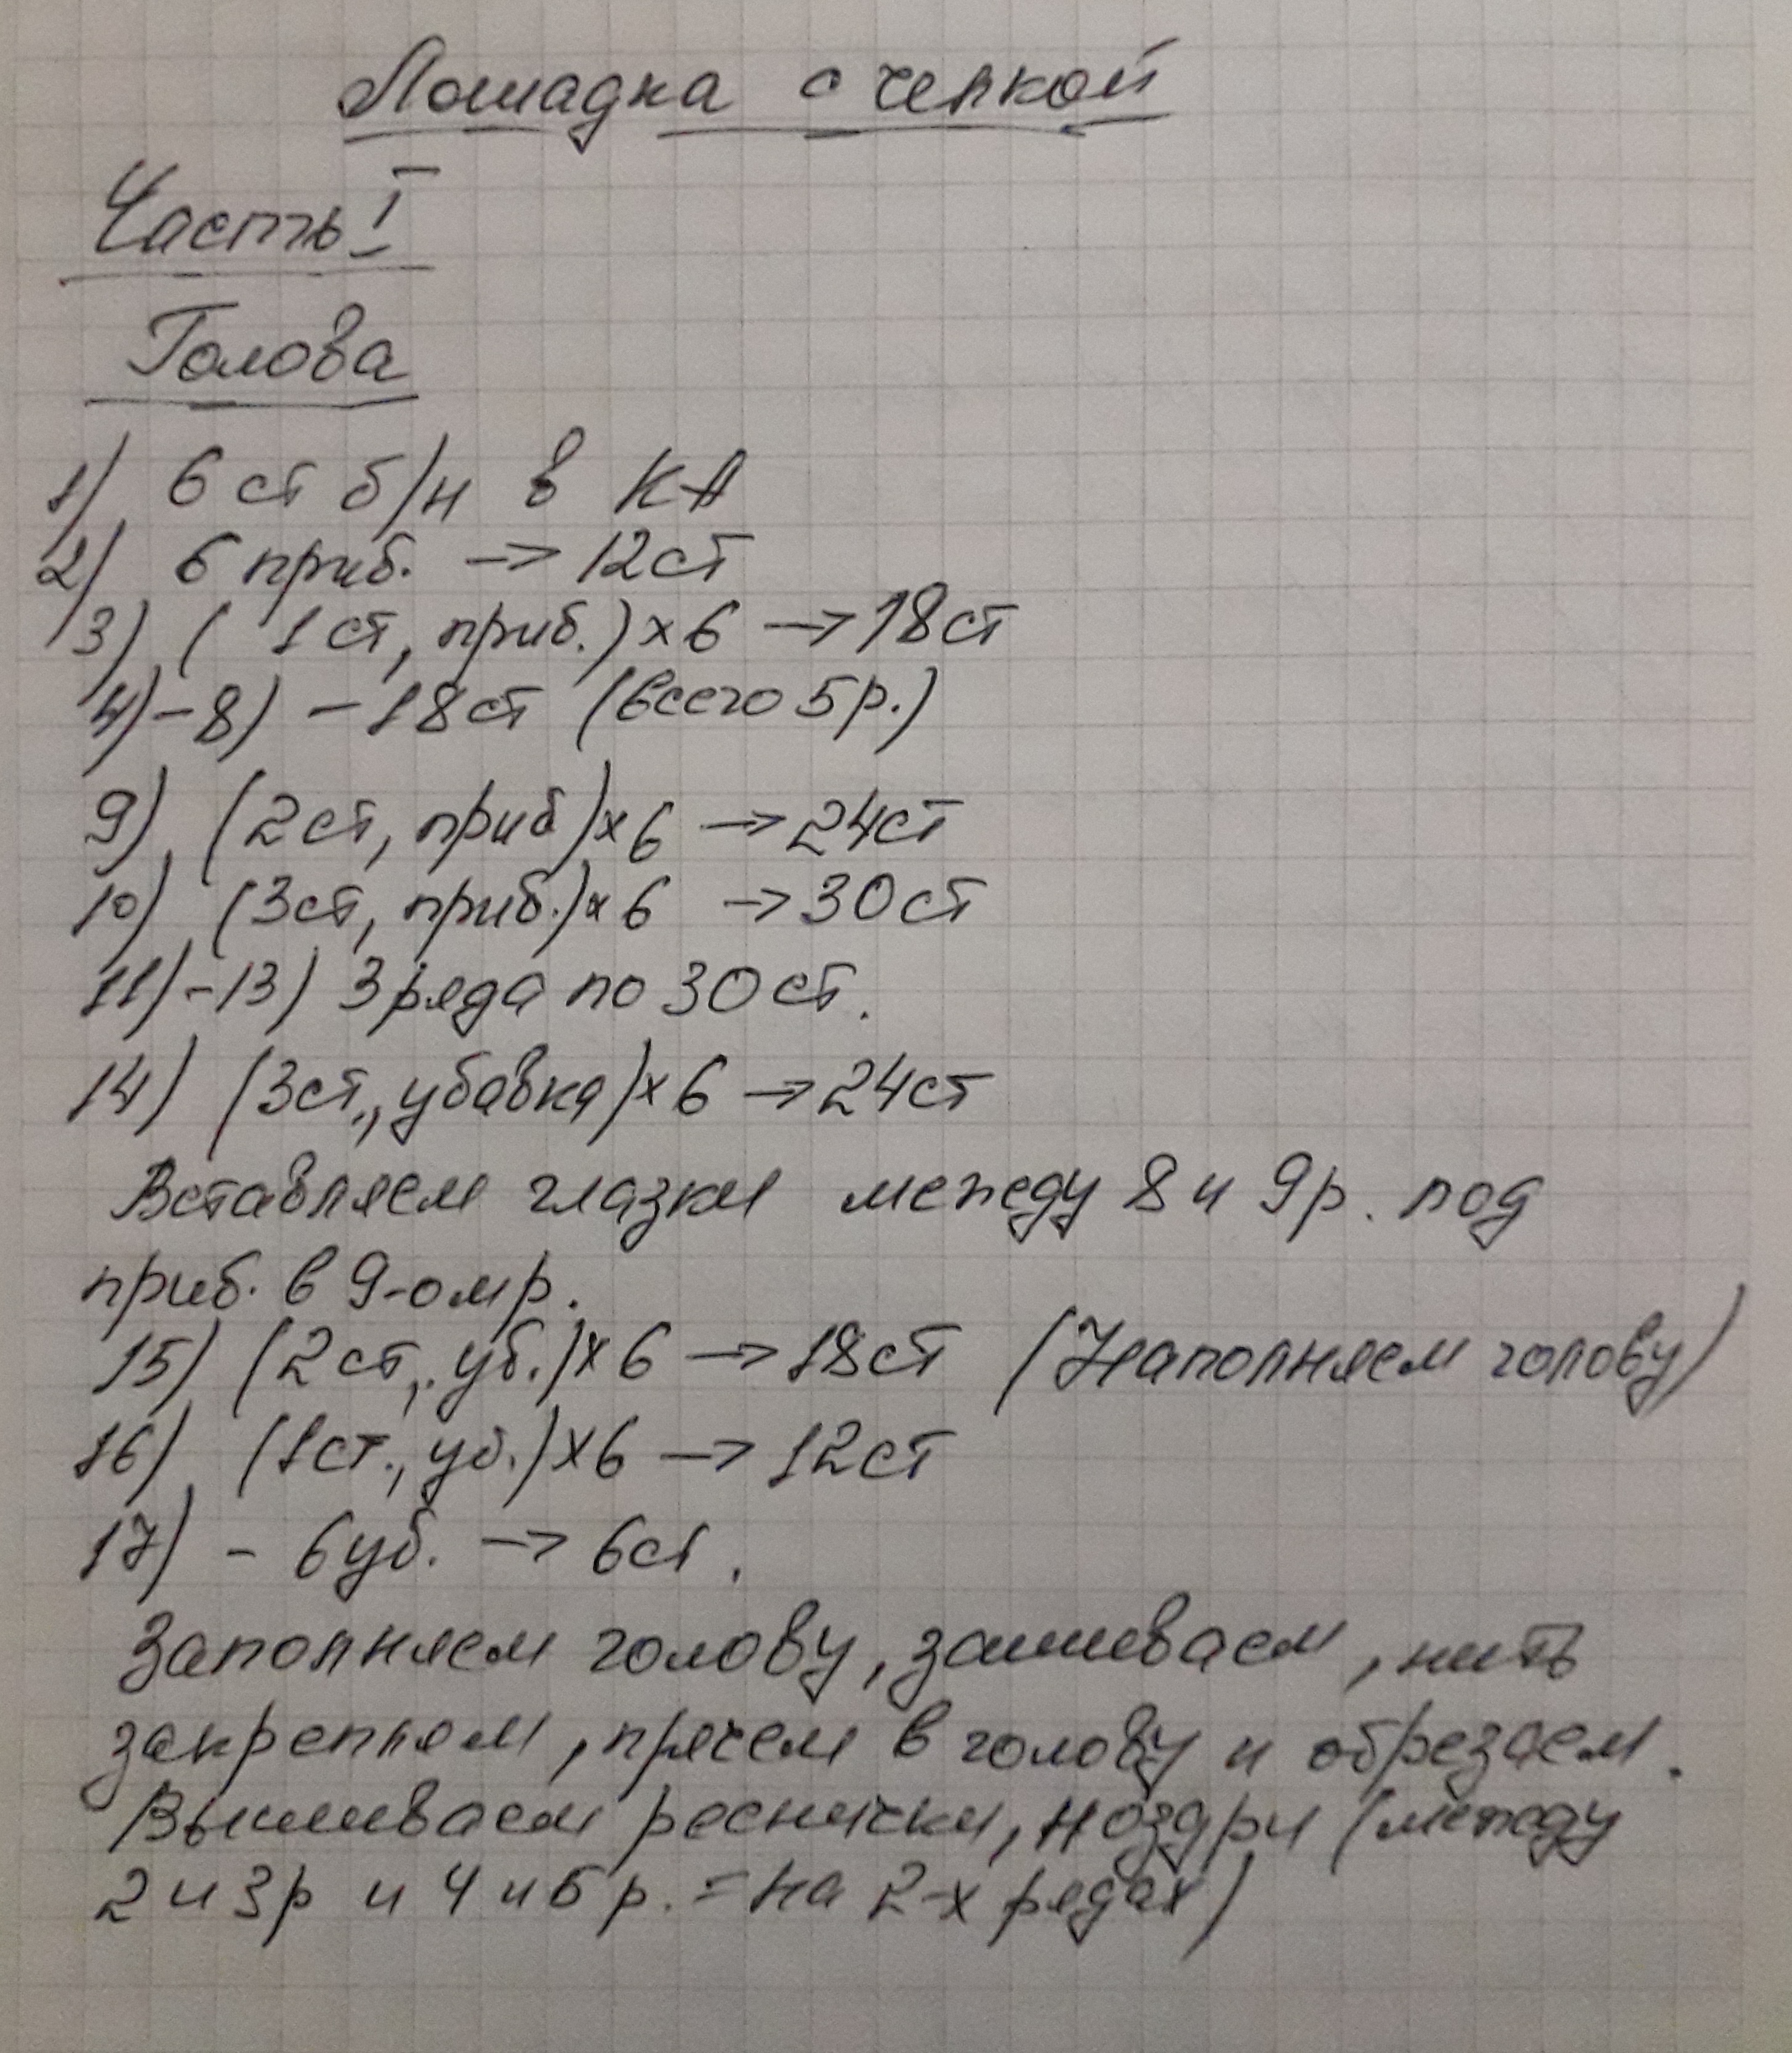 Лошадка с челкой
Часть I
Голова
1) 6 ст б/н в КА
2) 6 приб. → 12ст
3) ( 1 ст, приб.) × 6 → 18ст
4) - 8) - 18ст (всего 5 р.)
9) (2ст, приб) × 6 → 24ст
10) (3ст, приб.) × 6 → 30ст
11) - 13) 3 ряда по 30 ст.
14) (3ст., убавка) × 6 → 24ст
Вставляем глазки между 8 и 9 р. под
приб. в 9-ом р.
15) (2 ст, уб.) × 6 → 18ст (Наполняем голову)
16) (1ст., уб.) × 6 → 12ст
17) - 6 уб. → 6ст.
Заполняем голову, зашиваем, нить
закрепляем, прячем в голову и обрезаем.
Вышиваем реснички, ноздри (между
2 и 3 р и 4 и 5 р. = на 2-х рядах)